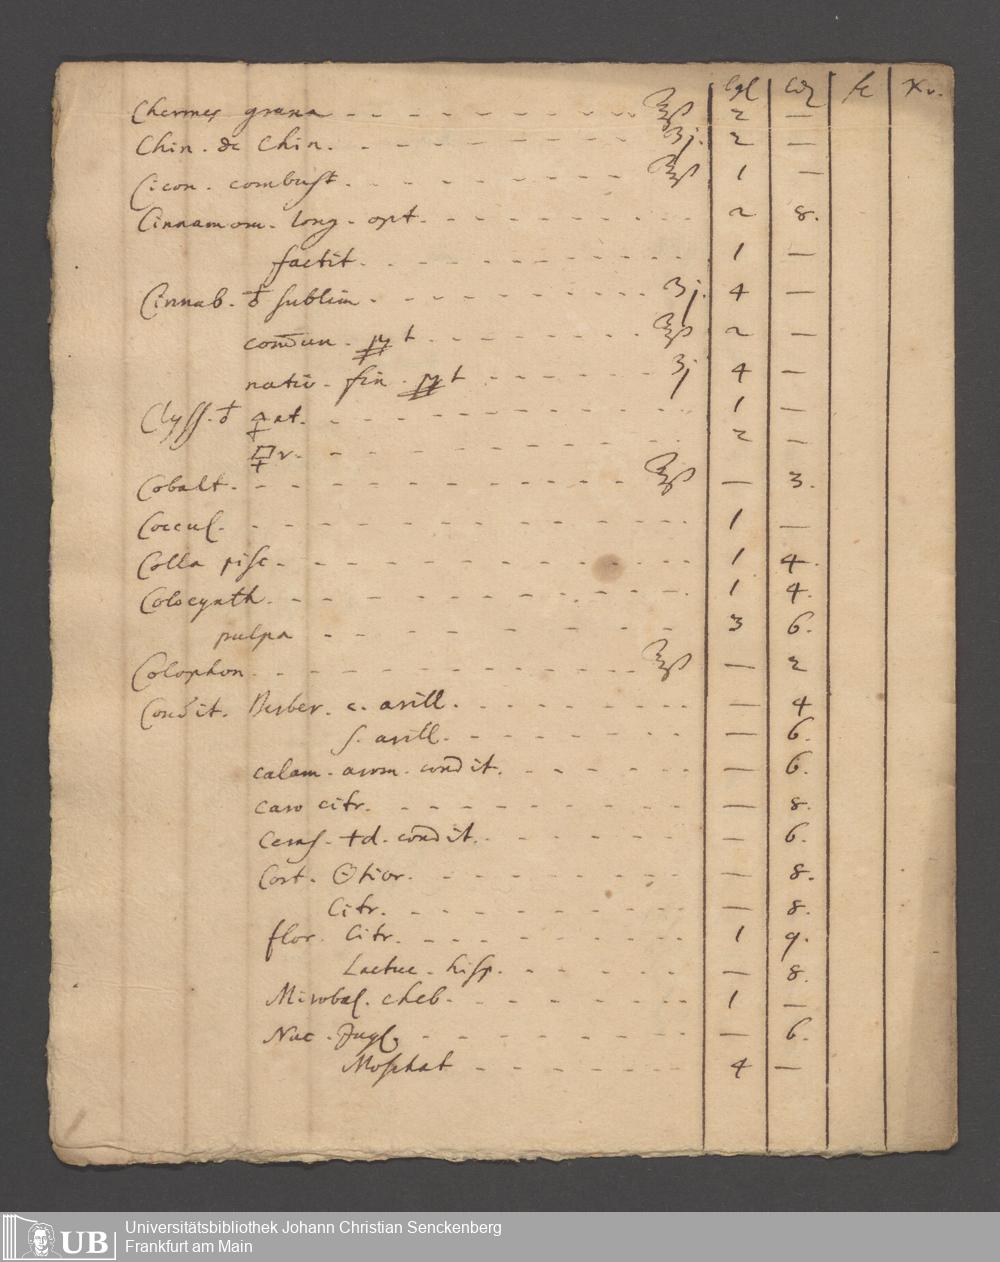 Chermes grana - - - - - - - ʒß 2 —
Chin. de Chin. - - - - - - - ʒj. 2 —
Cicon. combust. - - - - - - - ʒß 1 —
Cinnamom. long. opt. - - - - - - - 2 8.
factit. - - - - - - - 1 —
Cinnab. ♁ sublim. - - - - - - - ʒj. 4 —
com̄un. - - - - - - - ʒß 2 —
nativ. fin. - - - - - - ʒj 4 —
Clyss. ♁ 🜍at. - - - - - - - 1 —
- - - - - - - 2 —
Cobalt. - - - - - - - ʒß — 3.
Coccul. - - - - - - - 1 —
Colla pisc. - - - - - - - 1 4.
Colocynth. - - - - - - - 1 4.
pulpa - - - - - - - 3 6.
Colophon. - - - - - - - ʒß — 2
Condit. Berber. c. arill. - - - - - - — 4
s. arill. - - - - - - — 6.
calam. arom. condit. - - - - - — 6.
caro citr. - - - - - - - — 8.
Ceras. condit. - - - - - - — 6.
Cort. - - - - - - - — 8.
Citr. - - - - - - - — 8.
flor. Citr. - - - - - - - 1 9.
Lactuc. hisp. - - - - - — 8.
Mirobal. cheb. - - - - - - 1 —
Nuc. Jugl. - - - - - - - — 6.
Moschat - - - - - - 4 —
UB Universitätsbibliothek Johann Christian Senckenberg
Frankfurt am Main